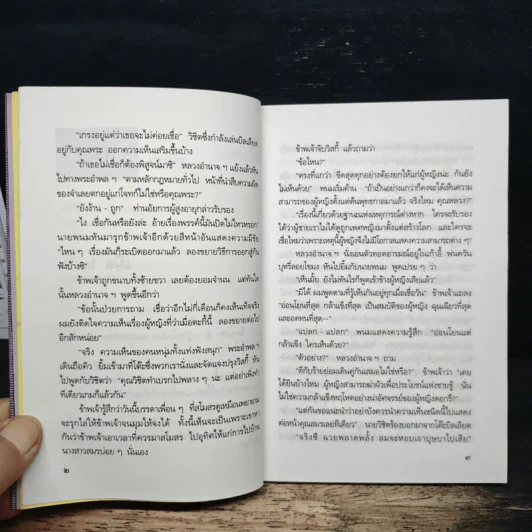 "เกรงอยู่แต่ว่าเธอจะไม่ค่อยเชื่อ" วิชิตซึ่งกำลังเล่นบิลเลียด
อยู่กับคุณพระ ออกความเห็นเสริมขึ้นบ้าง
"ถ้าเธอไม่เชื่อก็ต้องพิสูจน์มาซิ" หลวงอำนาจ ฯ แย้งแล้วหัน
ไปทางพระอำพล ฯ "ตามหลักกฎหมายทั่วไป หน้าที่นำสืบความผิด
ของจำเลยตกอยู่แก่โจทก์ไม่ใช่หรือคุณพระ?"
"ยังงั้น - ถูก" ท่านอัยการผู้สูงอายุกล่าวรับรอง
"ไง เชื่อกันหรือยังล่ะ อ้ายเรื่องพรรค์นี้มันเปิดไม่ไหวหรอก"
นายพนมหันมารุกข้าพเจ้าอีกด้วยสีหน้าอันแสดงความมีชัย
"ไหน ๆ เรื่องมันก็ระเบิดออกมาแล้ว ลองขยายวิธีการออกสู่กัน
ฟังบ้างซิ"
ข้าพเจ้าถูกขนาบทั้งซ้ายขวา เลยต้องยอมจำนน แต่ทันใด
นั้นหลวงอำนาจ ฯ พูดขึ้นอีกว่า
"ข้อนั้นป่วยการถาม เชื่อว่าอีกไม่กี่เดือนก็คงเห็นที่จริง
ผมยังติดใจความเห็นเรื่องผู้หญิงที่ว่าเมื่อตะกี้นี้ ลองขยายต่อไป
อีกสักหน่อย"
"จริง ความเห็นของคนหนุ่มทั้งแก่ฟังสนุก" พระอำพล ฯ
เดินถือคิว ยิ้มเข้ามาที่โต๊ะซึ่งพวกเรานั่งและจัดแจงปรุงวิสกี้ หัน
ไปพูดกับวิชิตว่า "คุณวิชิตทำเบรกไปพลาง ๆ นะ แต่อย่าเพิ่งทำ
ทีเดียวเกมก็แล้วกัน"
ข้าพเจ้ารู้สึกว่าวันนี้บรรดาเพื่อน ๆ ที่สโมสรดูเหมือนพยายาม
จะรุกไล่ให้ข้าพเจ้าจนมุมให้จงได้ ทั้งนี้เห็นจะเป็นเพราะเขาหา
กันว่าข้าพเจ้าเอาเวลาที่ควรมาสโมสร ไปอุทิศให้แก่การไปบ้าน
นางสาวสมรบ่อย ๆ นั่นเอง
๒
ข้าพเจ้าจิบวิสกี้ แล้วถามว่า
"ข้อไหน?"
"ตรงที่แกว่า ขีดสุดทุกอย่างต้องยกให้แก่ผู้หญิงน่ะ กันยัง
ไม่เห็นด้วย" พนมเริ่มค้าน "ถ้าเป็นอย่างแกว่าก็คงจะได้เห็นความ
สามารถของผู้หญิงตั้งแต่ต้นพุทธกาลมาแล้ว จริงไหม คุณหลวง?"
"เรื่องนี้เกี่ยวด้วยฐานะแห่งเหตุการณ์ต่างหาก ใครจะรับรอง
ได้ว่าผู้ชายเราไม่ได้ดูถูกเพศหญิงมาตั้งแต่สร้างโลก และใครจะ
เชื่อไหมว่าเพราะเหตุนี้ผู้หญิงจึงไม่มีโอกาสแสดงความสามารถต่าง ๆ"
หลวงอำนาจ ฯ นั่งเอนตัวทอดอารมณ์อยู่ในเก้าอี้ พ่นควัน
บุหรี่ลอยโขมง หันไปยิ้มกับนายพนม พูดเปรย ๆ ว่า
"เห็นมั้ย ยังไม่ทันไรก็พูดเข้าข้างผู้หญิงเสียแล้ว"
"มิได้ ผมพูดตามที่รู้เห็นกันอยู่ทุกเมื่อเชื่อวัน" ข้าพเจ้าแถลง
"อ่อนโยนที่สุด กล้าแข็งที่สุด เป็นสมบัติของผู้หญิง ฉุนเฉียวที่สุด
และอดทนที่สุด--"
"แปลก - แปลก" พนมแสดงความรู้สึก "อ่อนโยนแต่
กล้าแข็ง ใครเห็นด้วย?"
"ตัวอย่าง?" หลวงอำนาจ ฯ ถาม
"ดีกับร้ายย่อมเดินคู่กันเสมอไม่ใช่หรือ?" ข้าพเจ้าว่า "เคย
ได้ยินบ้างไหม ผู้หญิงสามารถฆ่าผัวเพื่อประโยชน์แห่งชายชู้ นั่น
ไม่ใช่ความกล้าแข็งเหี้ยมโหดอย่างน่าอัศจรรย์ของผู้หญิงดอกรึ?"
"แต่กันขอแนะนำว่าอย่างนี้ควรนำความเห็นชนิดนี้ไปแสดง
ต่อหน้าคุณสมรเลยทีเดียว" นายวิชิตร้องบอกมาจากโต๊ะบิลเลียด
"จริงซี ฉวยพลาดพลั้ง ลมจะหอบเอาบุษบาไปเสีย"
๓